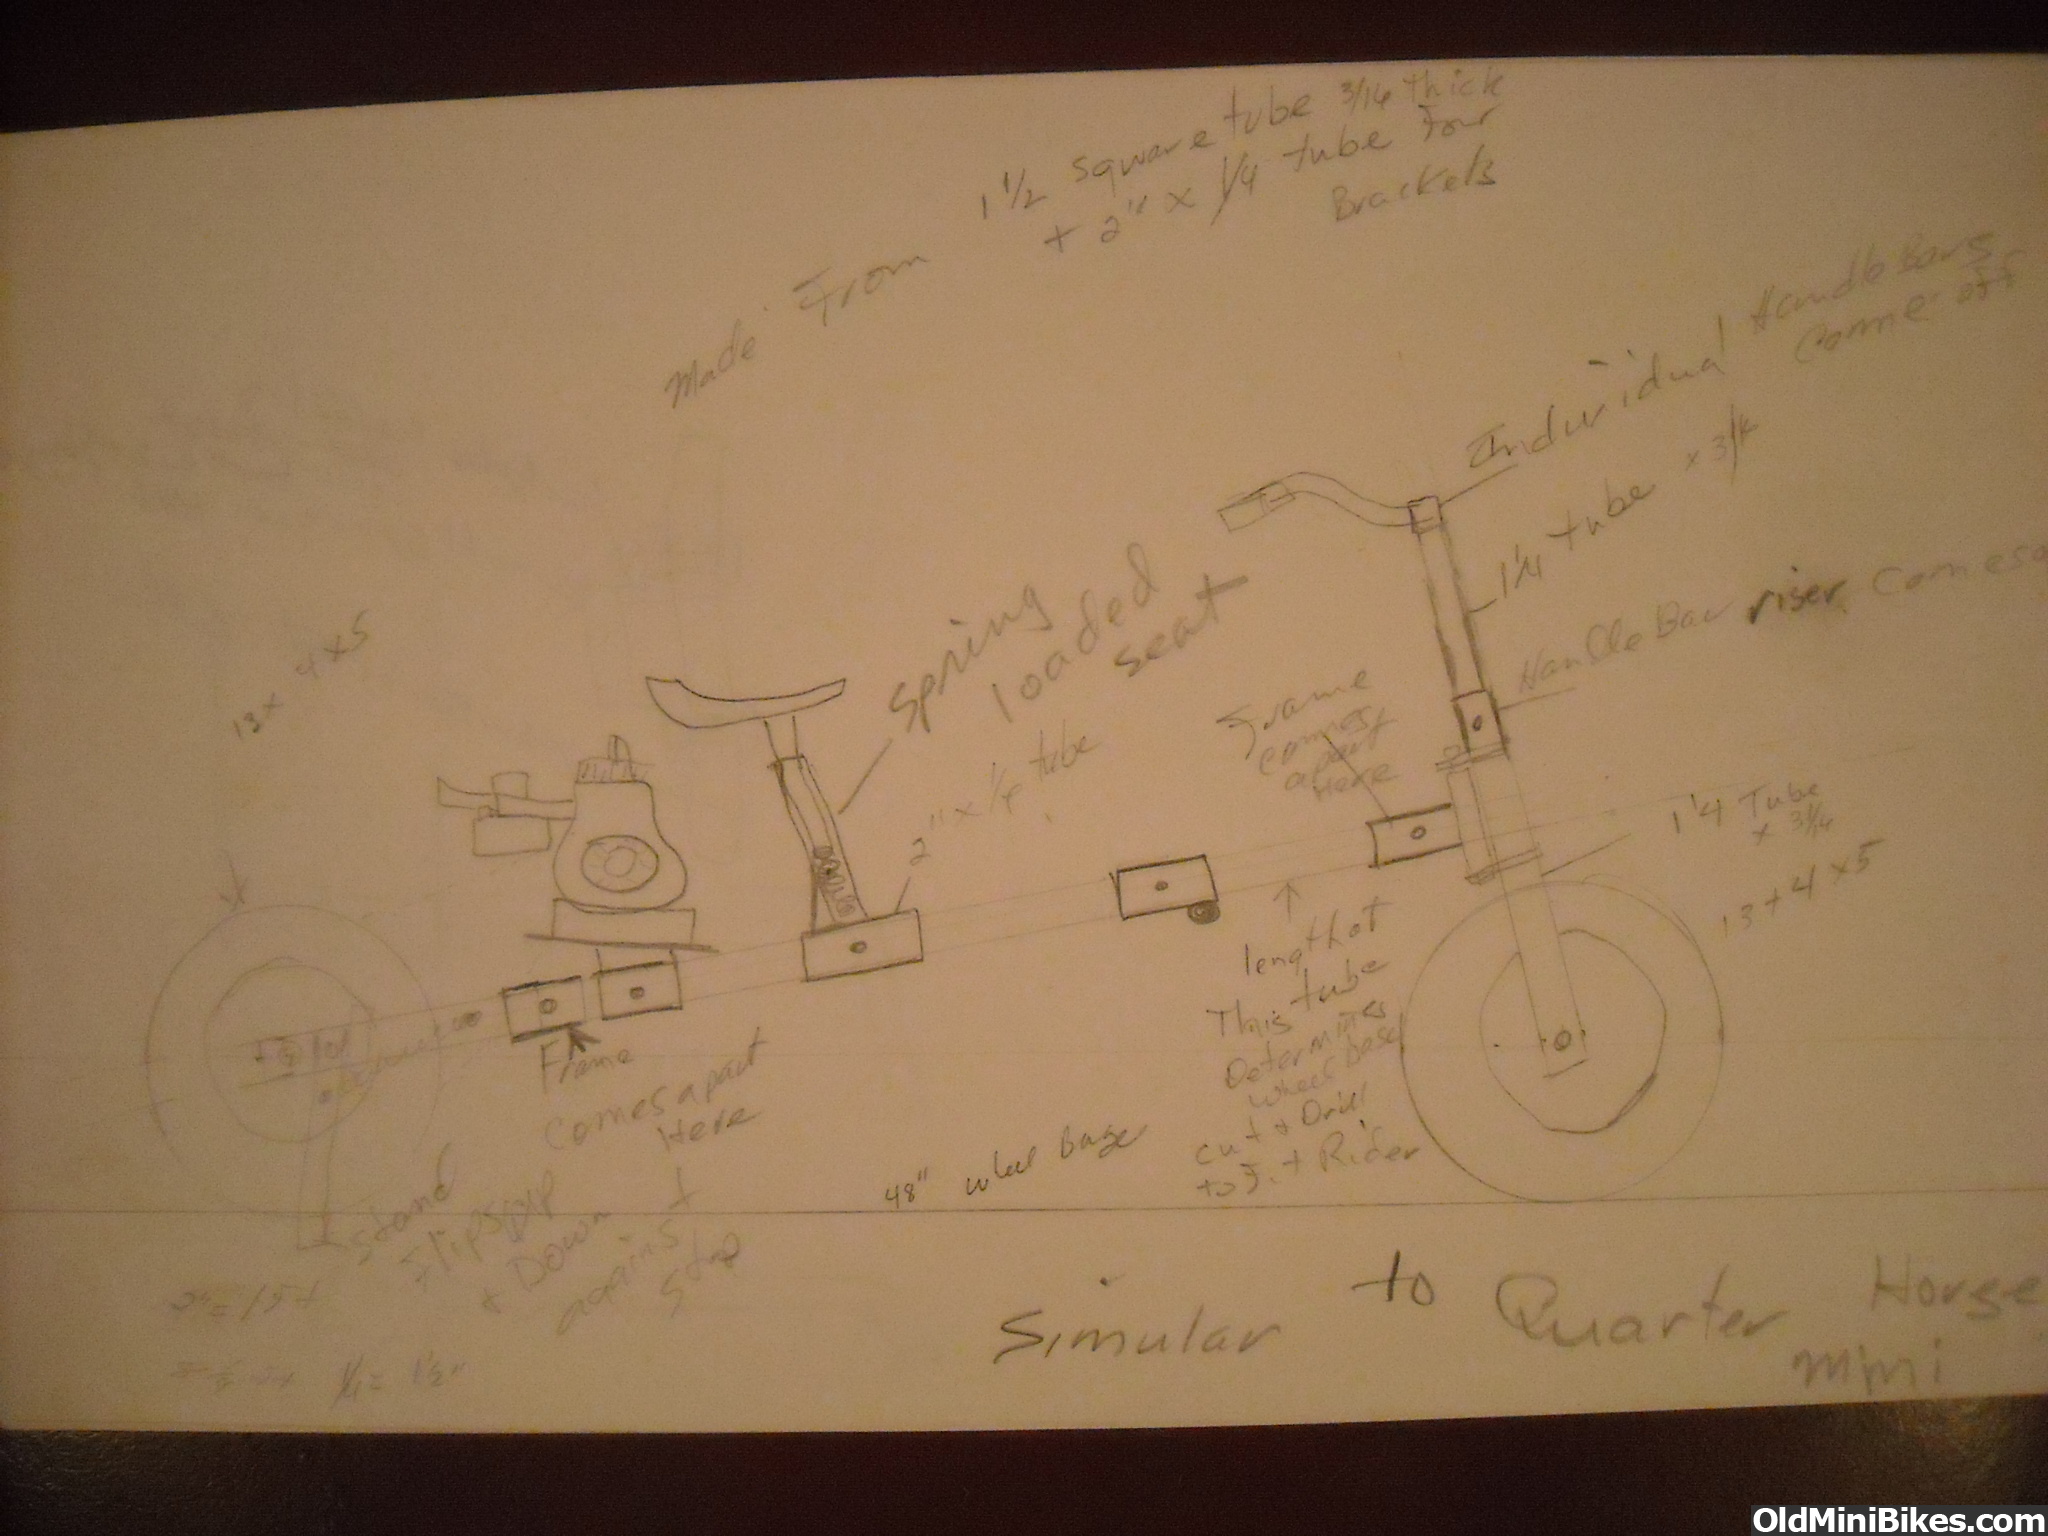 Made From 1 1/2 square tube 3/16 thick
+ 2" x 1/4 tube For
Brackets
Individual HandleBars
Come off
1 1/4 tube x 3/16
HandleBar riser Comes
13 x 4 x 5
spring
loaded
seat
2" x 1/4 tube
Frame
comes
apart
Here
1 1/4 Tube
x 3/16
13 + 4 x 5
length of
This tube
Determines
wheel base
cut + Drill
to Fit Rider
Frame
Comes apart
Here
48" wheel base
stand
Flips up
+ Down
against
stop
1/4 = 1 1/2"
Simular to Quarter Horse
mini
OldMiniBikes.com